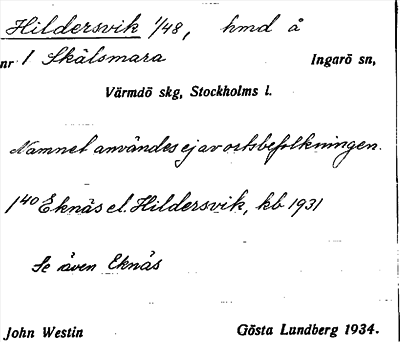 Hildersvik 1/48, hmd å
nr 1 Skälsmara Ingarö sn,
Värmdö skg, Stockholms l.
Namnet användes ej av ortsbefolkningen.
1⁴⁰ Eknäs el. Hildersvik, kb 1931
Se även Eknäs
John Westin Gösta Lundberg 1934.